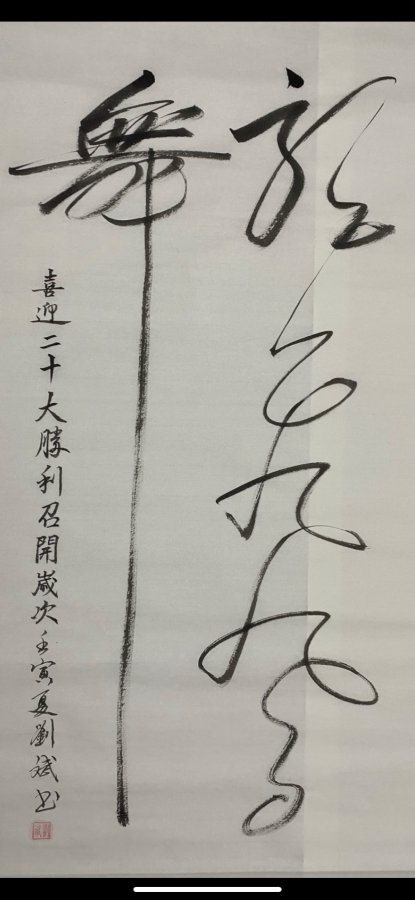 龍飛鳳
舞
喜迎二十大勝利召開歲次壬寅夏劉斌书